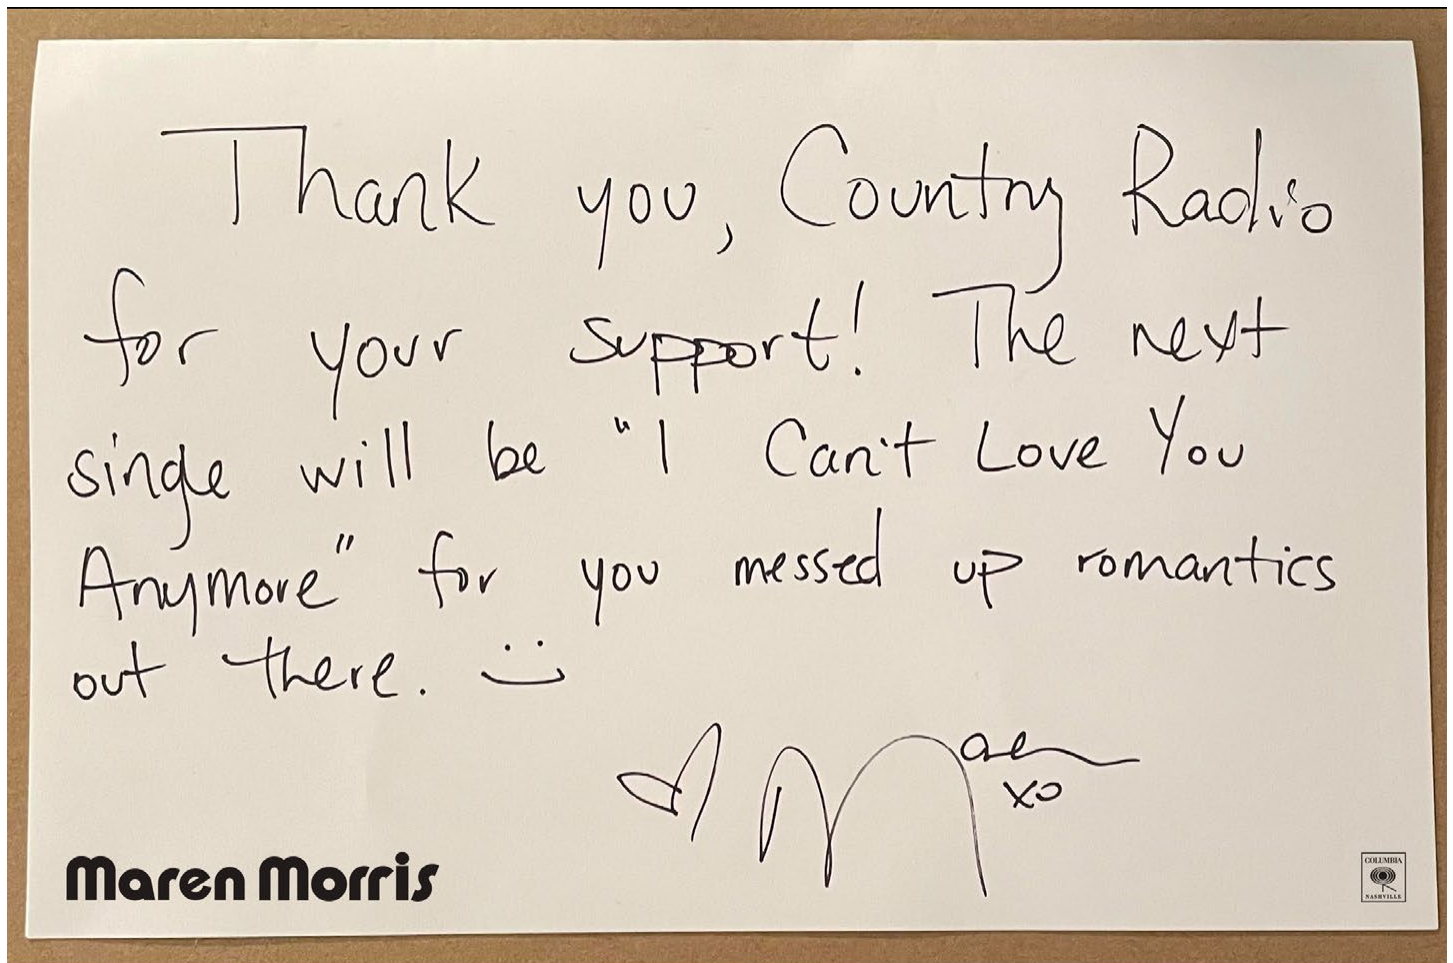 Thank you, Country Radio
for your support! The next
single will be "I Can't Love You
Anymore" for you messed up romantics
out there. :)
♡ Maren
xo
Maren Morris
COLUMBIA
NASHVILLE